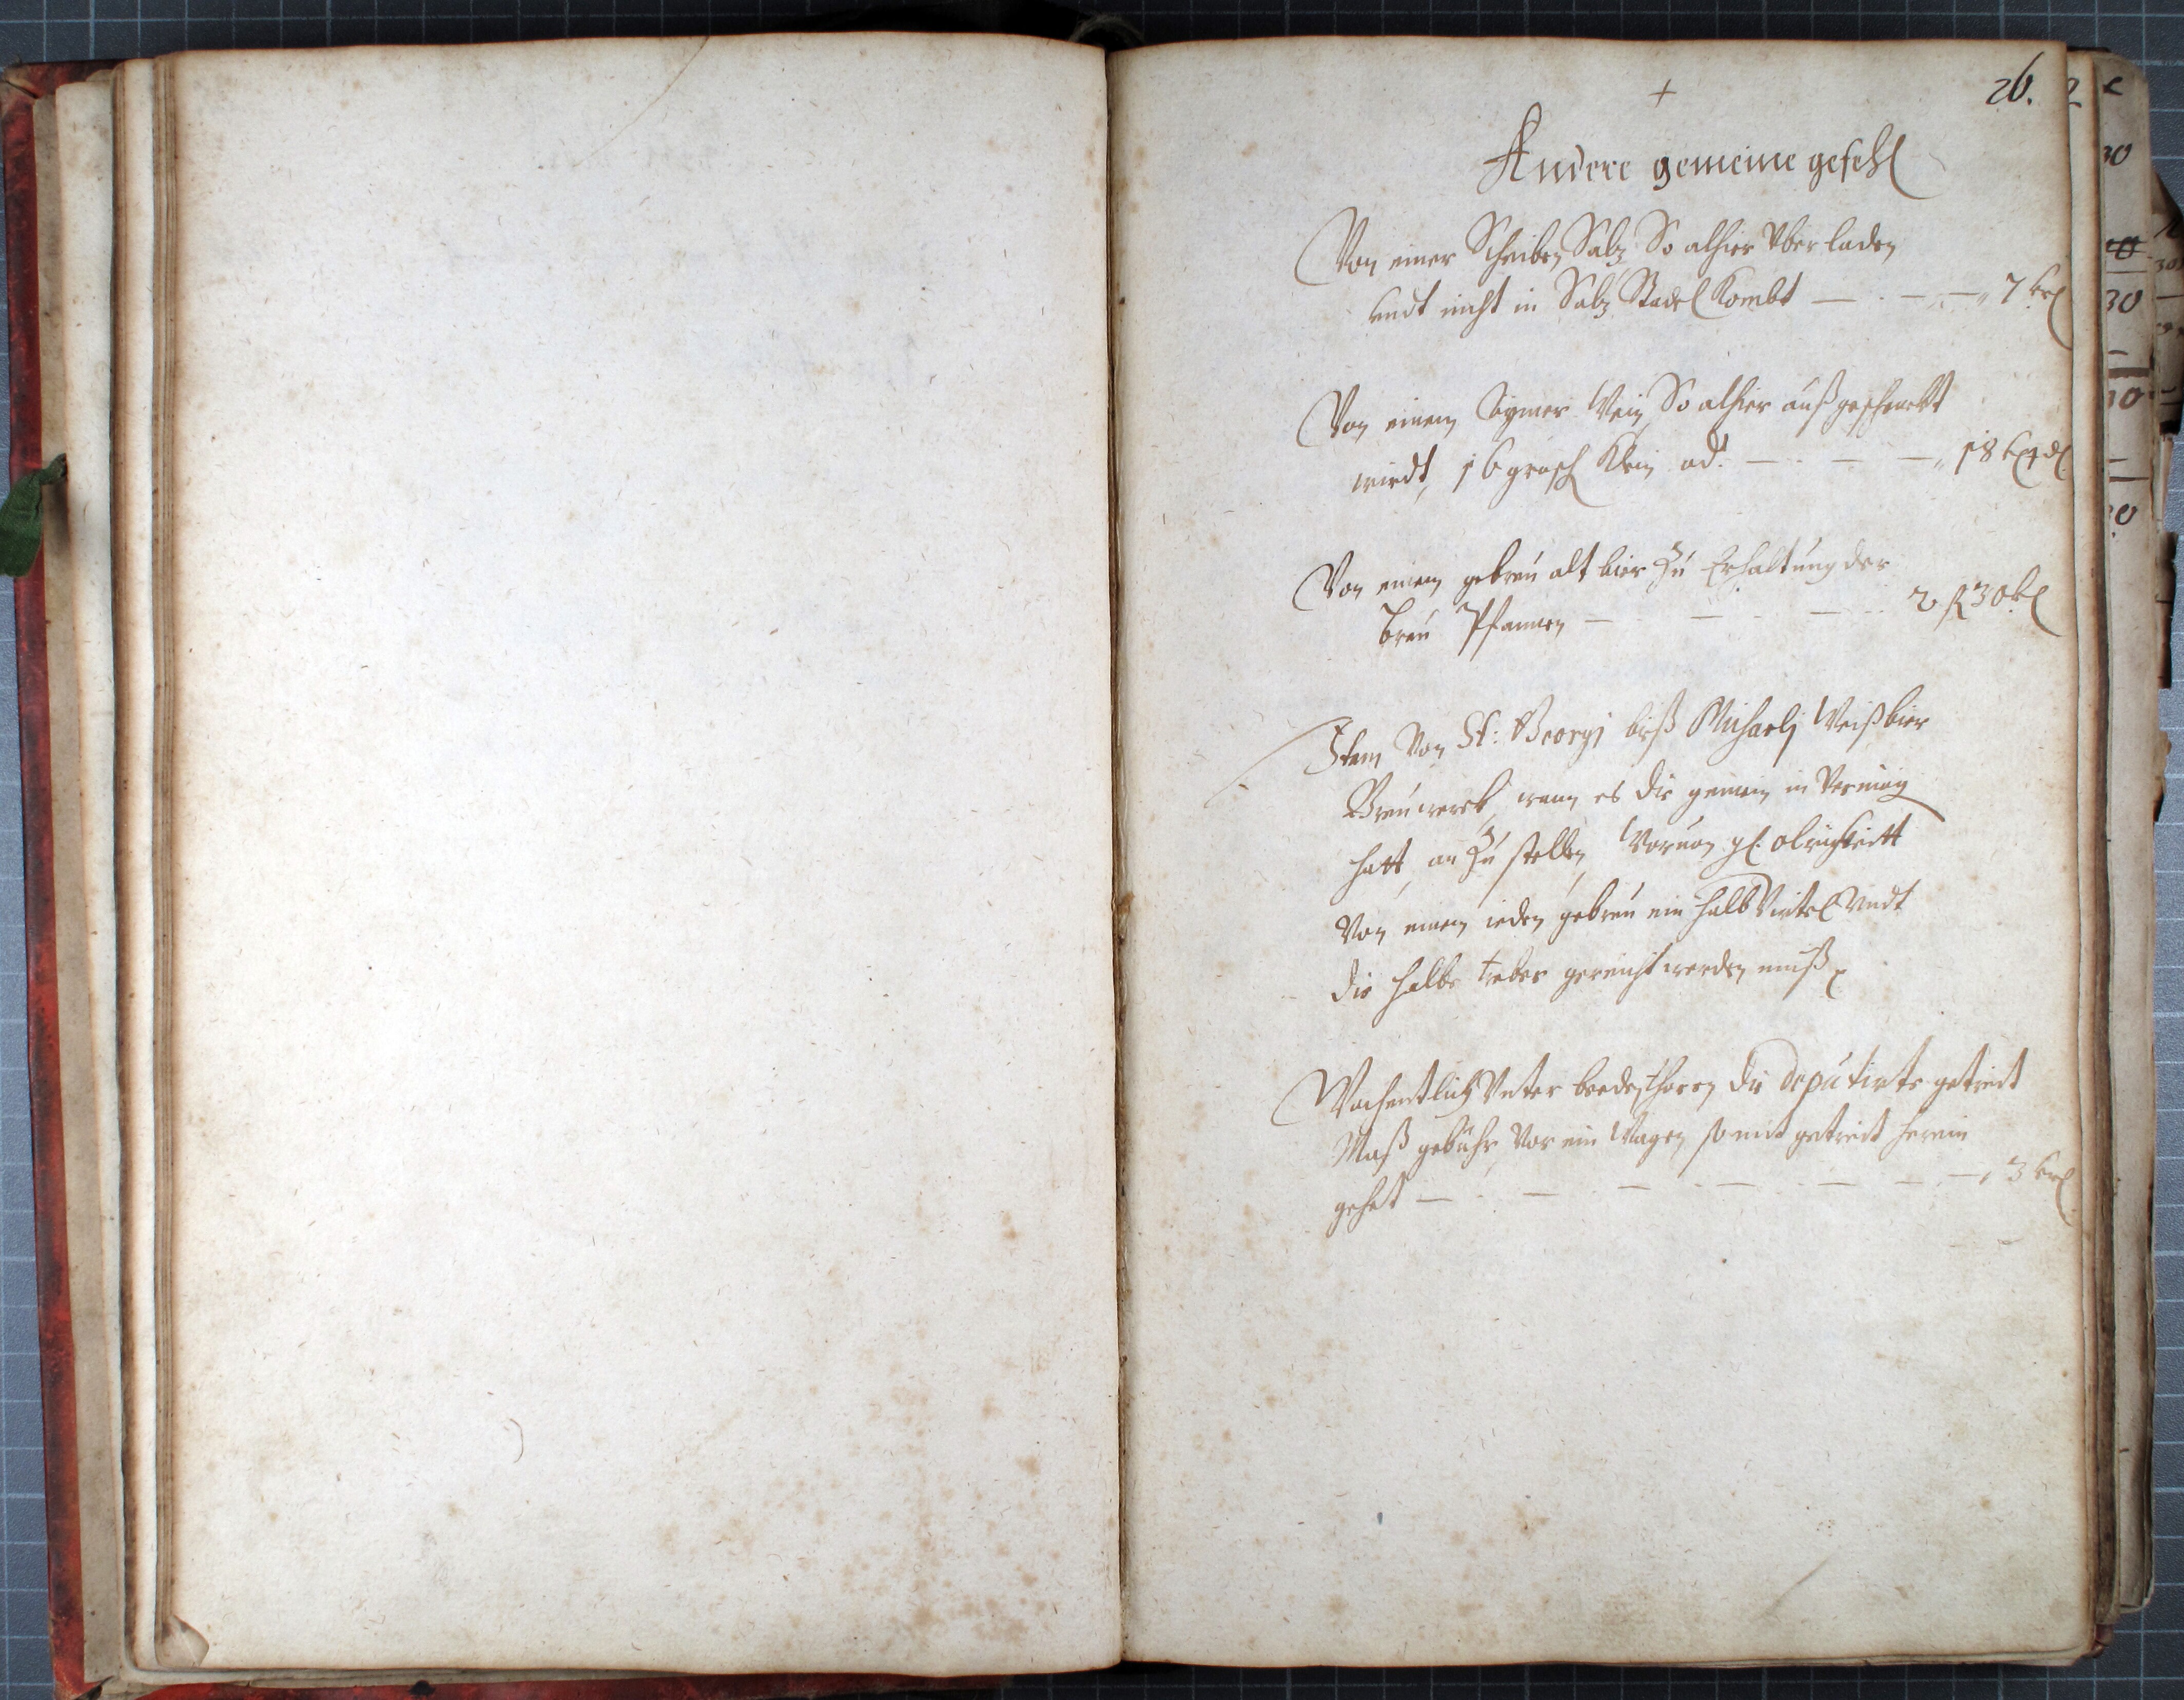 26.
+
Andere gemeine gefehl
Von einer Scheiben Saltz, So alhier Vber laden
vndt nicht in Saltz Stadel kombt — · — · — 7 krl
Von einem Eymer Wein, So alhier außgeschenckt
wirdt, 16 grosch klein od: — · — — 18 k 4 dl
Von einem gebreu alt bier zu Erhaltung der
breu Pfannen — · — · — 2 fl 30 kl
Item Von St: Georgj biß Michaelj Weißbier
Breuwerck, wann es die gemein in Vermög
hatt, an zu stellen, Woruon gl. obrigkeitt
Von einem ieden gebreu ein halb Virtel Vndt
die halbe treber gereicht werden muß
Wochentlich Vnter beeden thoren die deputirte getreit
Maß gebühr, Vor ein Wagen, so mit getreit herein
gehet — · — · — · — · — · — 3 krl